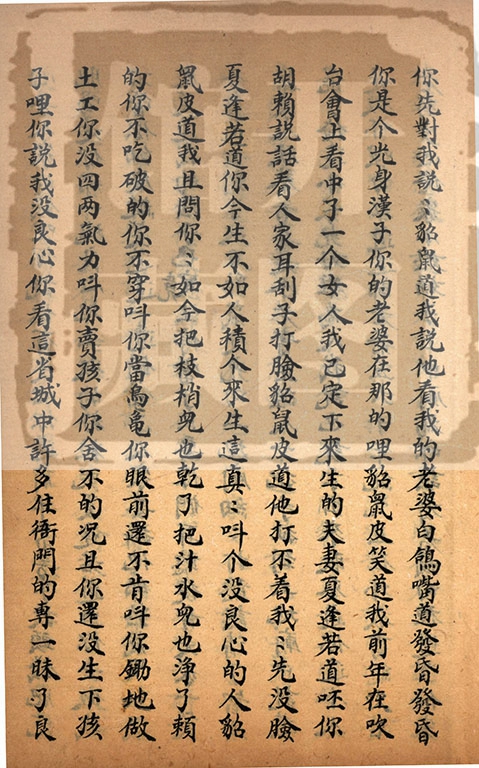 你先對我說〻貂鼠道我說他看我的老婆白鴿嘴道發昏發昏
你是个光身漢子你的老婆在那的哩貂鼠皮笑道我前年在吹
台會上看中了一个女人我已定下來生的夫妻夏逢若道呸你
胡賴說話看人家耳刮子打臉貂鼠皮道他打不着我〻先没臉
夏逢若道你今生不如人積个來生這真〻呌个没良心的人貂
鼠皮道我且問你〻如今把枝梢兜也乾了把汁水兜也净了賴
的你不吃破的你不穿呌你當烏亀你眼前還不肯呌你鋤地做
土工你没四两氣力呌你賣孩子你舍不的况且你還没生下孩
子哩你說我没良心你看這省城中許多住衙門的専一昧了良